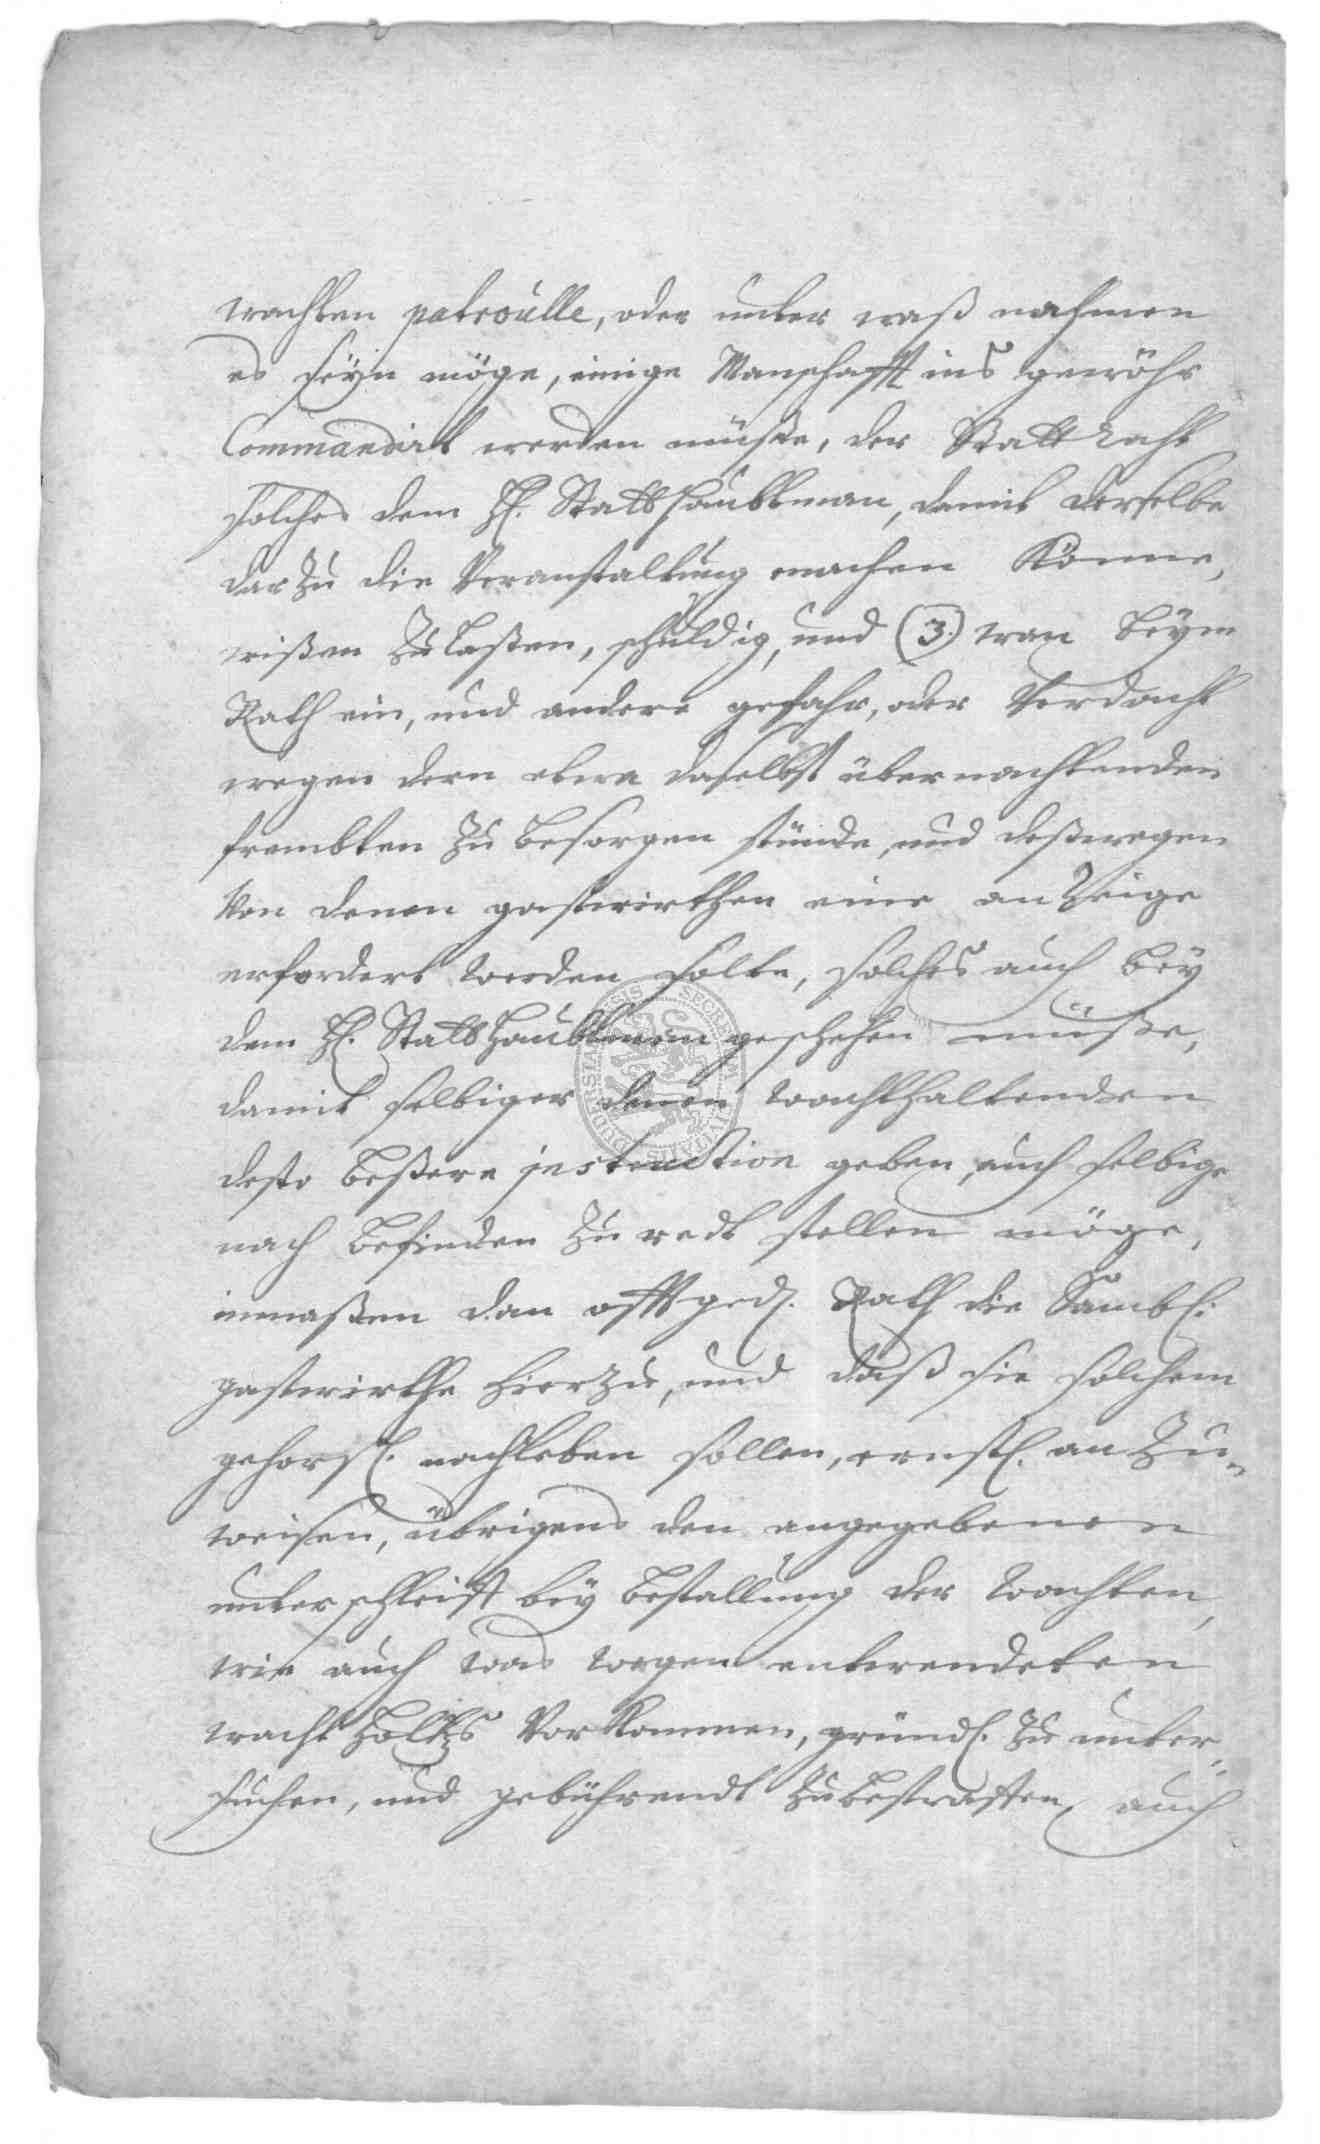 wachten patroulle, oder unter waß nahmen
es seÿn möge, einige Manschafft ins gewöhr
Commandirt werden müste, der Statt Raht
solches dem H. Stattshaubtman, damit derselbe
darzu die Veranstaltung machen Könne,
wißen zu laßen, schuldig, und (3.) wan beÿm
Rath ein, und andere gefahr, oder Verdacht
wegen dern etwa daselbst übernachtenden
frembten zu besorgen stünde, und deßwegen
von denen gastwirthen eine anzeige
erfordert werden solte, solches auch beÿ
dem H. Stattshaubtman geschehen müste,
damit selbiger denen wachthaltenden
desto beßere instruction geben, auch selbige
nach befinden zu redt stellen möge,
inmaßen dan offtged. Rath die Sämbtl.
gastwirthe hierzu, und daß sie solchem
gehorsl. nachleben sollen, ernstl. an zu-
weisen, übrigens den angegebenen
unterschleiff beÿ bestallung der wachten,
wie auch was wegen entwendeten
wacht Holtzs vorkommen, gründl. zu unter-
suchen, und gebührendt zu bestraffen, auch
SECRETUM CIVITATIS